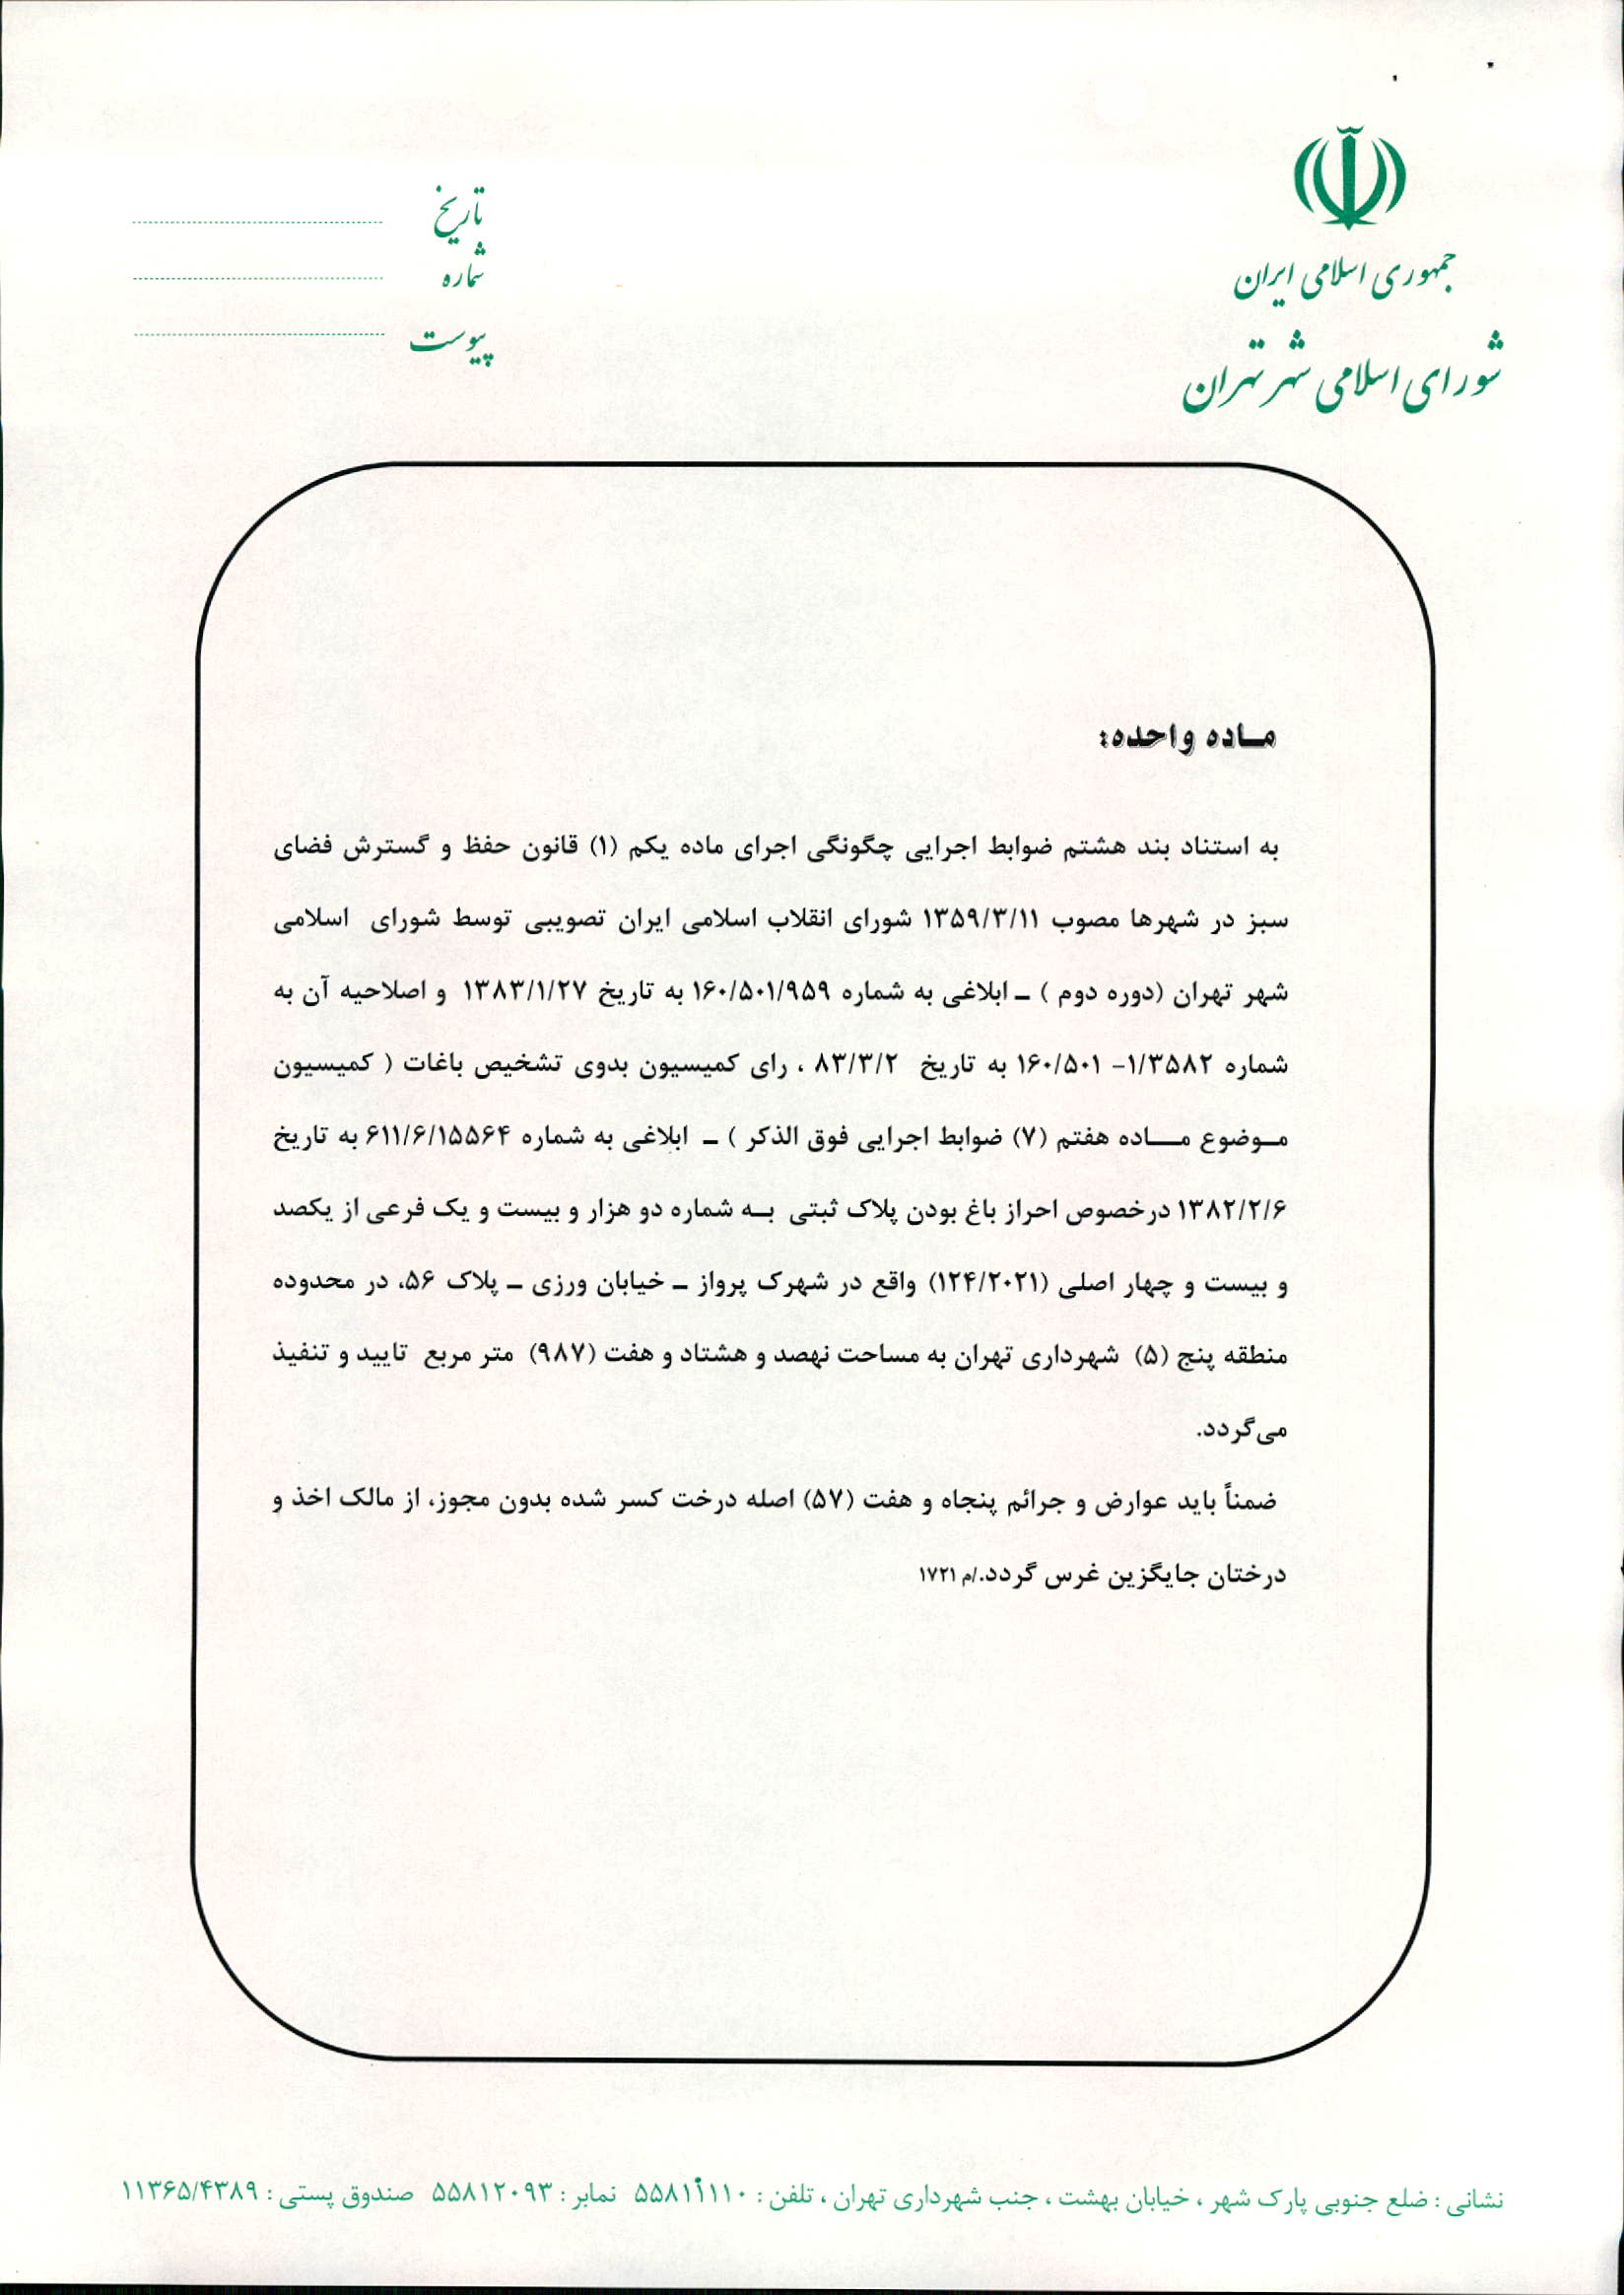 جمهوری اسلامی ایران
شورای اسلامی شهر تهران
تاریخ
شماره
پیوست
مـاده واحده:
به استناد بند هشتم ضوابط اجرایی چگونگی اجرای ماده یکم (۱) قانون حفظ و گسترش فضای
سبز در شهرها مصوب ۱۳۵۹/۳/۱۱ شورای انقلاب اسلامی ایران تصویبی توسط شورای اسلامی
شهر تهران (دوره دوم ) ـ ابلاغی به شماره ۱۶۰/۵۰۱/۹۵۹ به تاریخ ۱۳۸۳/۱/۲۷ و اصلاحیه آن به
شماره ۱/۳۵۸۲- ۱۶۰/۵۰۱ به تاریخ ۸۳/۳/۲ ، رای کمیسیون بدوی تشخیص باغات ( کمیسیون
مـوضوع مـــاده هفتم (۷) ضوابط اجرایی فوق الذکر ) ـ ابلاغی به شماره ۶۱۱/۶/۱۵۵۶۴ به تاریخ
۱۳۸۲/۲/۶ درخصوص احراز باغ بودن پلاک ثبتی بـه شماره دو هزار و بیست و یک فرعی از یکصد
و بیست و چهار اصلی (۱۲۴/۲۰۲۱) واقع در شهرک پرواز ـ خیابان ورزی ـ پلاک ۵۶، در محدوده
منطقه پنج (۵) شهرداری تهران به مساحت نهصد و هشتاد و هفت (۹۸۷) متر مربع تایید و تنفیذ
می‌گردد.
ضمناً باید عوارض و جرائم پنجاه و هفت (۵۷) اصله درخت کسر شده بدون مجوز، از مالک اخذ و
درختان جایگزین غرس گردد./م ۱۷۲۱
نشانی : ضلع جنوبی پارک شهر ، خیابان بهشت ، جنب شهرداری تهران ، تلفن : ۵۵۸۱۱۱۱۰ نمابر : ۵۵۸۱۲۰۹۳ صندوق پستی : ۱۱۳۶۵/۴۳۸۹